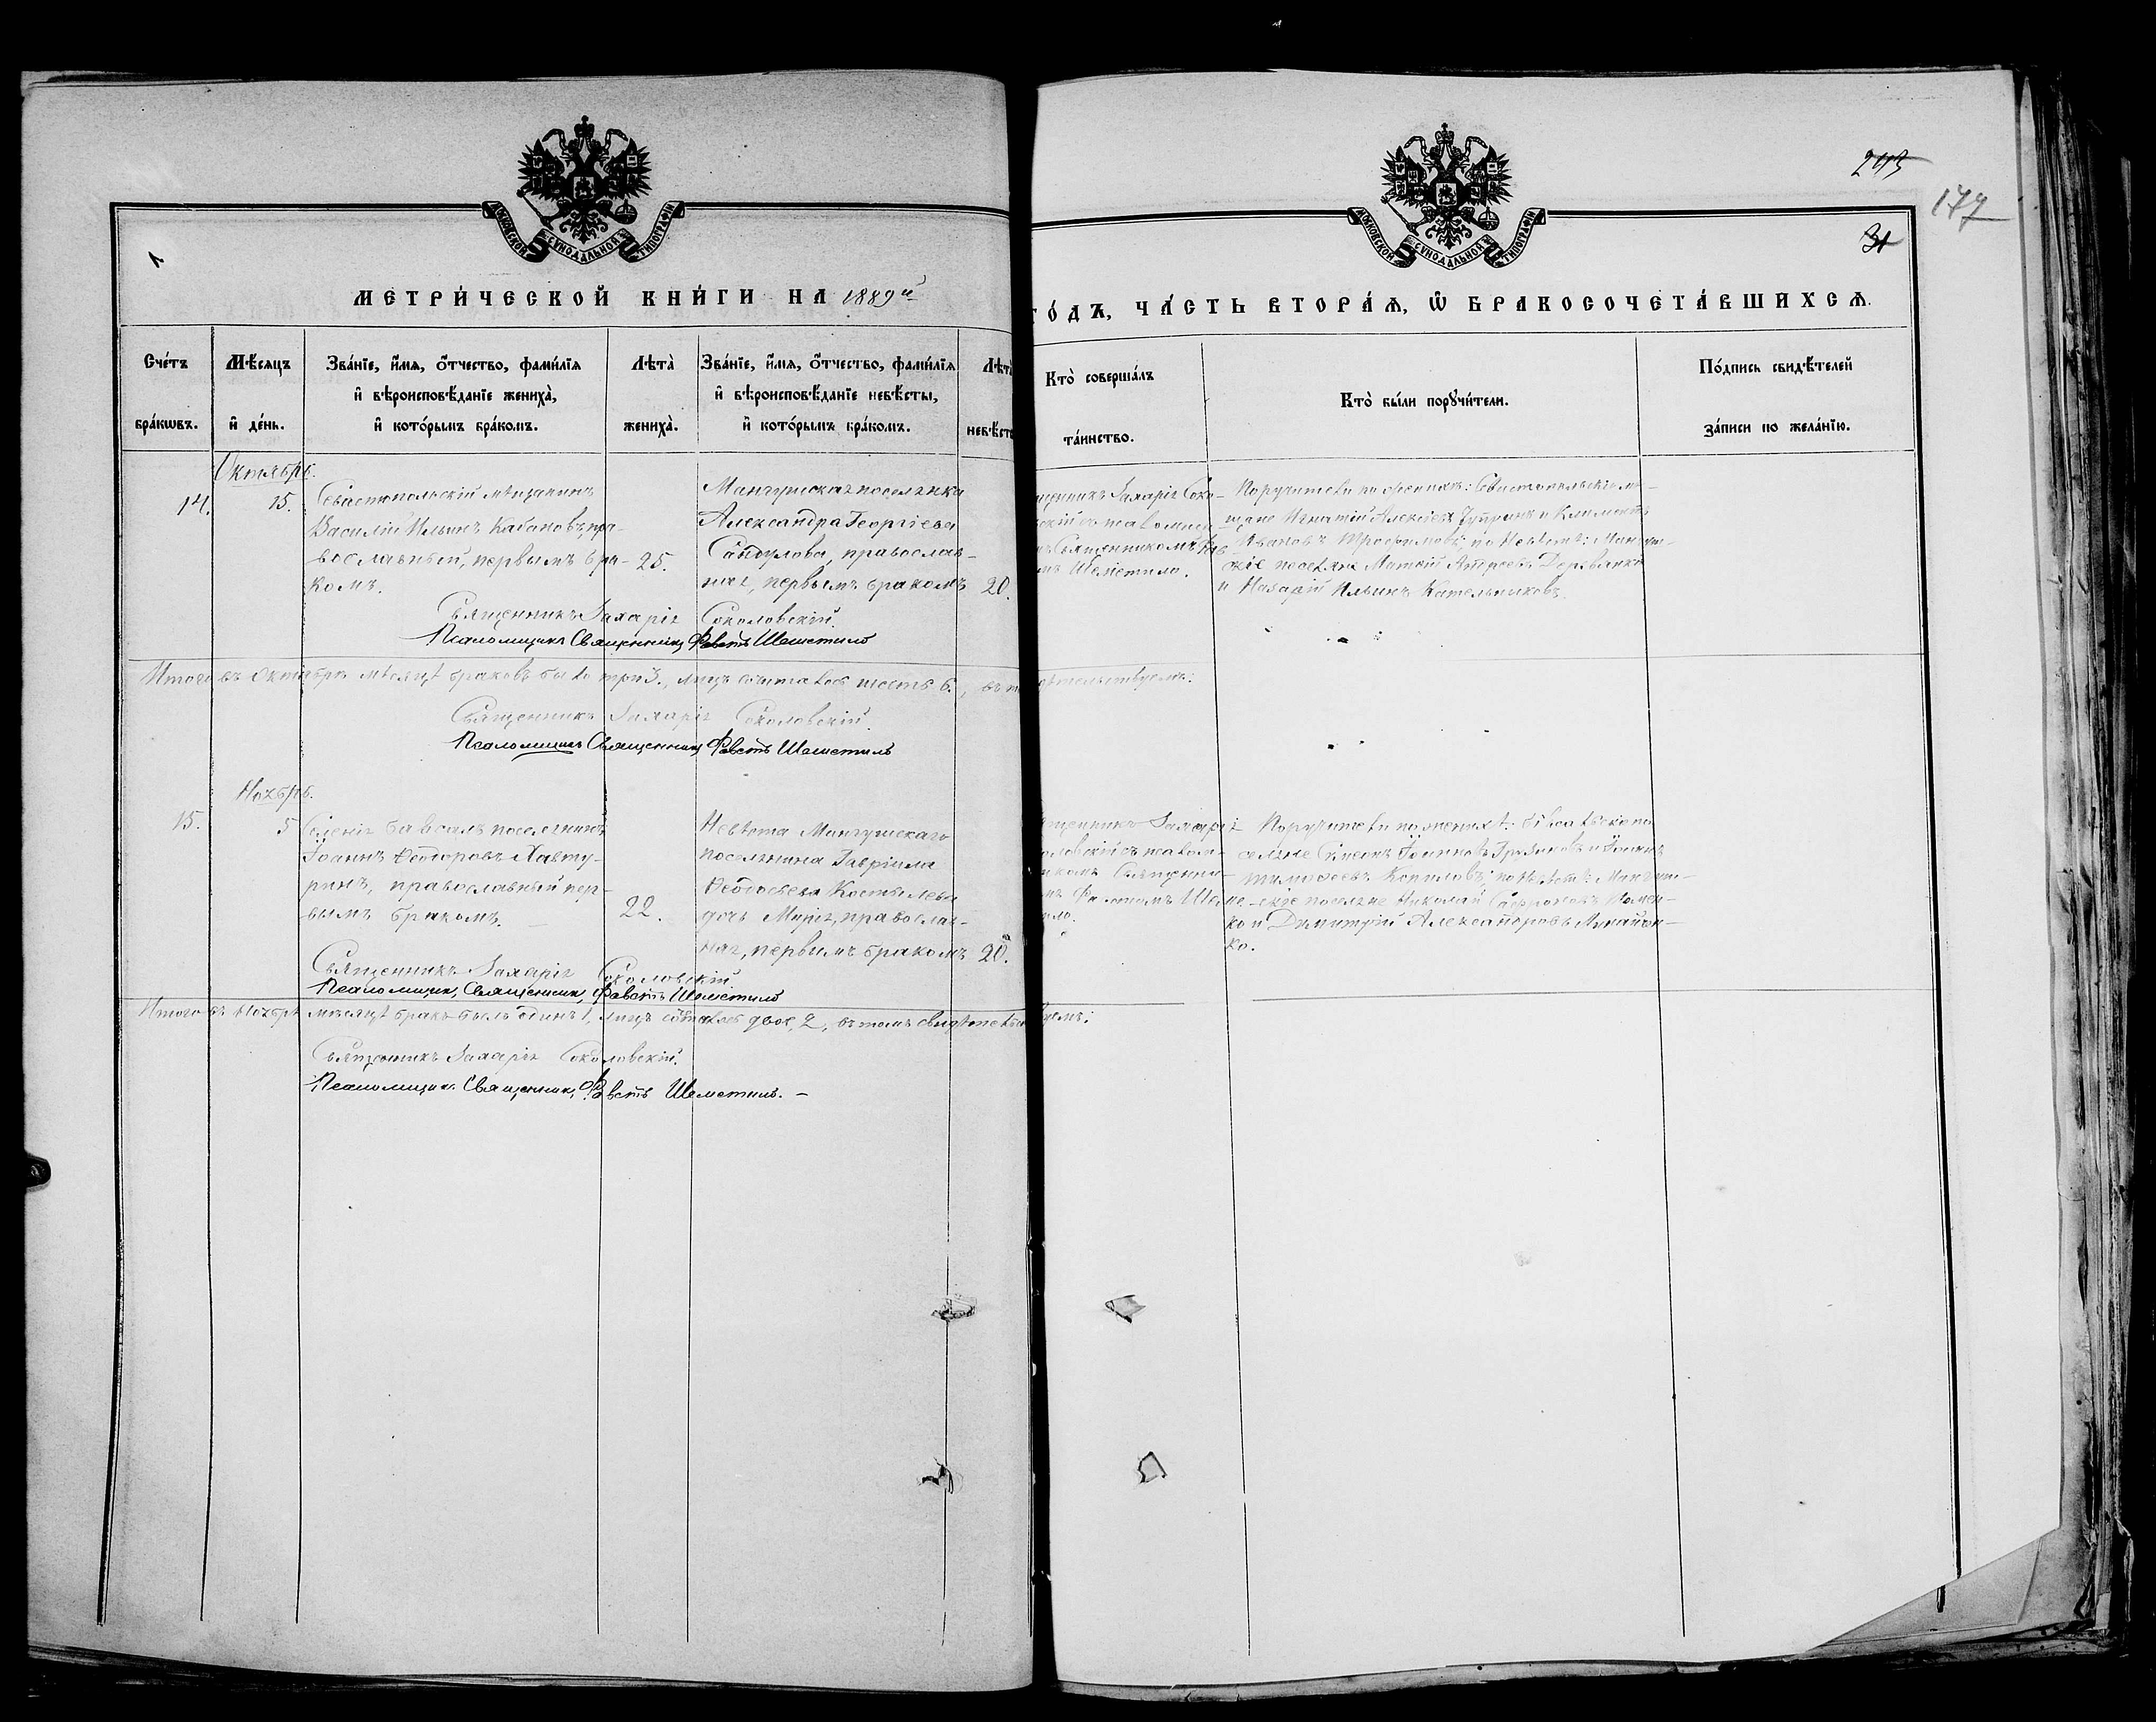 243
177
31
1
МОСКОВСКОЙ СѴНОДАЛЬНОЙ ТИПОГРАФІИ
МОСКОВСКОЙ СѴНОДАЛЬНОЙ ТИПОГРАФІИ
МЕТРИ́ЧЕСКОЙ КНИ́ГИ НА 1889й
ГО́ДЪ, ЧА́СТЬ ВТОРА́Ѧ, Ѡ҆ БРАКОСОЧЕТА́ВШИХСѦ.
Сче́тъ бра́кѡвъ.
Мѣ́сяцъ и҆ де́нь.
Зва́нїе, и҆́мѧ, ѻ҆́тчество, фами́лїѧ
и҆ вѣроисповѣ́данїе жениха̀,
и҆ кото́рымъ бра́комъ.
Лѣта̀ жениха̀.
Зва́нїе, и҆́мѧ, ѻ҆́тчество, фами́лїѧ
и҆ вѣроисповѣ́данїе невѣ́сты,
и҆ кото́рымъ бра́комъ.
Лѣта̀ невѣ́ст
Кто̀ соверша́лъ та́инство.
Кто̀ бы́ли порꙋчи́тели.
По́дпись свидѣ́телей
за́писи по жела́нїю.
Октябрь.
14.
15.
Севастопольскій мѣщанинъ
Василій Ильинъ Кабановъ, пра-
вославный, первымъ бра-
комъ.
25.
Мангушская поселянка
Александра Георгіева
Сандулова, православ-
ная, первымъ бракомъ
20.
щенникъ Захарія Соко-
скій съ псаломщи
Священникомъ Фав
мъ Шеметило.
Поручители по женихѣ: Севастопольскіе мѣ-
щане Игнатій Алексѣевъ и Климентъ
Ивановъ Трофимовъ; по невѣстѣ: Мангуш-
скіе поселяне Матвій Деревянко
и Назарій Ильинъ Кательниковъ.
Священникъ Захарія Соколовскій.
Псаломщикъ Священникъ Фавстъ Шеметило
Итого въ Октябрѣ мѣсяцѣ браковъ было три 3., лицъ сочталось шесть 6., въ т дѣтельствуемъ:
Священникъ Захарія Соколовскій.
Псаломщикъ Священникъ Фавстъ Шеметило
Ноябрь.
15.
5
Селенія поселянинъ
Іоаннъ Ѳеодоровъ Хавту-
ринъ, православный пер-
вымъ бракомъ.
22.
Невѣста Мангушскаго
поселянина Гавріила
Ѳеодосьева Костылева
дочь Марія, православ-
ная, первымъ бракомъ
20.
щенникъ Захарія
оловскій съ псалом-
комъ Священни-
Фавстомъ Шеме-
ило.
Поручители по женихѣ: по-
селяне Симеонъ Іоанновъ Грузиновъ и Іоаннъ
Тимоѳеевъ Копиловъ; по невѣстѣ: Мангуш-
скіе поселяне Николай Сафроновъ
ко и Димитрій Александровъ
ко.
Священникъ Захарія Соколовскій
Псаломщикъ, Священникъ, Фавстъ Шеметило
Итого въ Ноябрѣ мѣсяцѣ бракъ былъ одинъ 1, лицъ сочталось двое, 2, въ томъ свидѣтельствуемъ:
Священникъ Захарія Соколовскій.
Псаломщикъ Священникъ, Фавстъ Шеметило. –